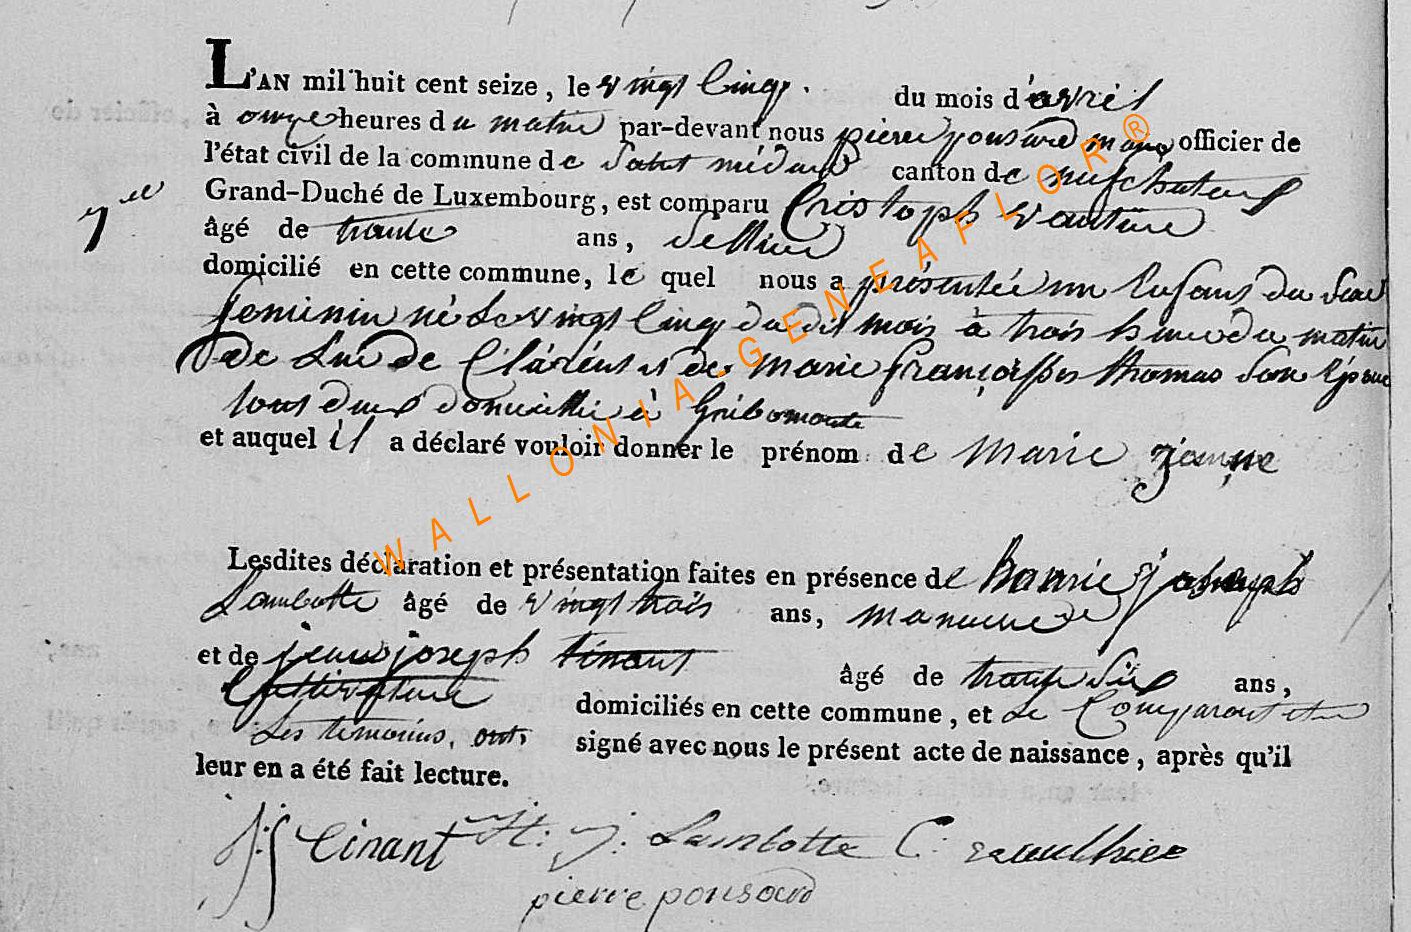 L'AN mil huit cent seize, le vingt cinq. du mois d'avril
à onze heures du matin par-devant nous pierre ponsard officier de
l'état civil de la commune de Saint médard canton de neufchateau
7me
Grand-Duché de Luxembourg, est comparu Cristoph vautier
âgé de trente ans, Sellier
domicilié en cette commune, le quel nous a présentée un Enfant du Sexe
feminin né Le vingt cinq du dit mois à trois heure du matin
de Lui de Clarent et de marie françoisse thomas Son Epouse
tous deux domicillié à Gribomonte
et auquel il a déclaré vouloir donner le prénom de Marie jeanne
Lesdites déclaration et présentation faites en présence de hanrie joseph
Lambotte âgé de vingt trois ans, manuvre
et de jean joseph tinant âgé de trente Six ans,
Cultivateur domiciliés en cette commune, et Le Comparant et
Les temoins, ont signé avec nous le présent acte de naissance, après qu'il
leur en a été fait lecture.
j: j tinant H: J: Lambotte C: vaulthier
pierre ponsard
WALLONIA-GENEAFLOR®